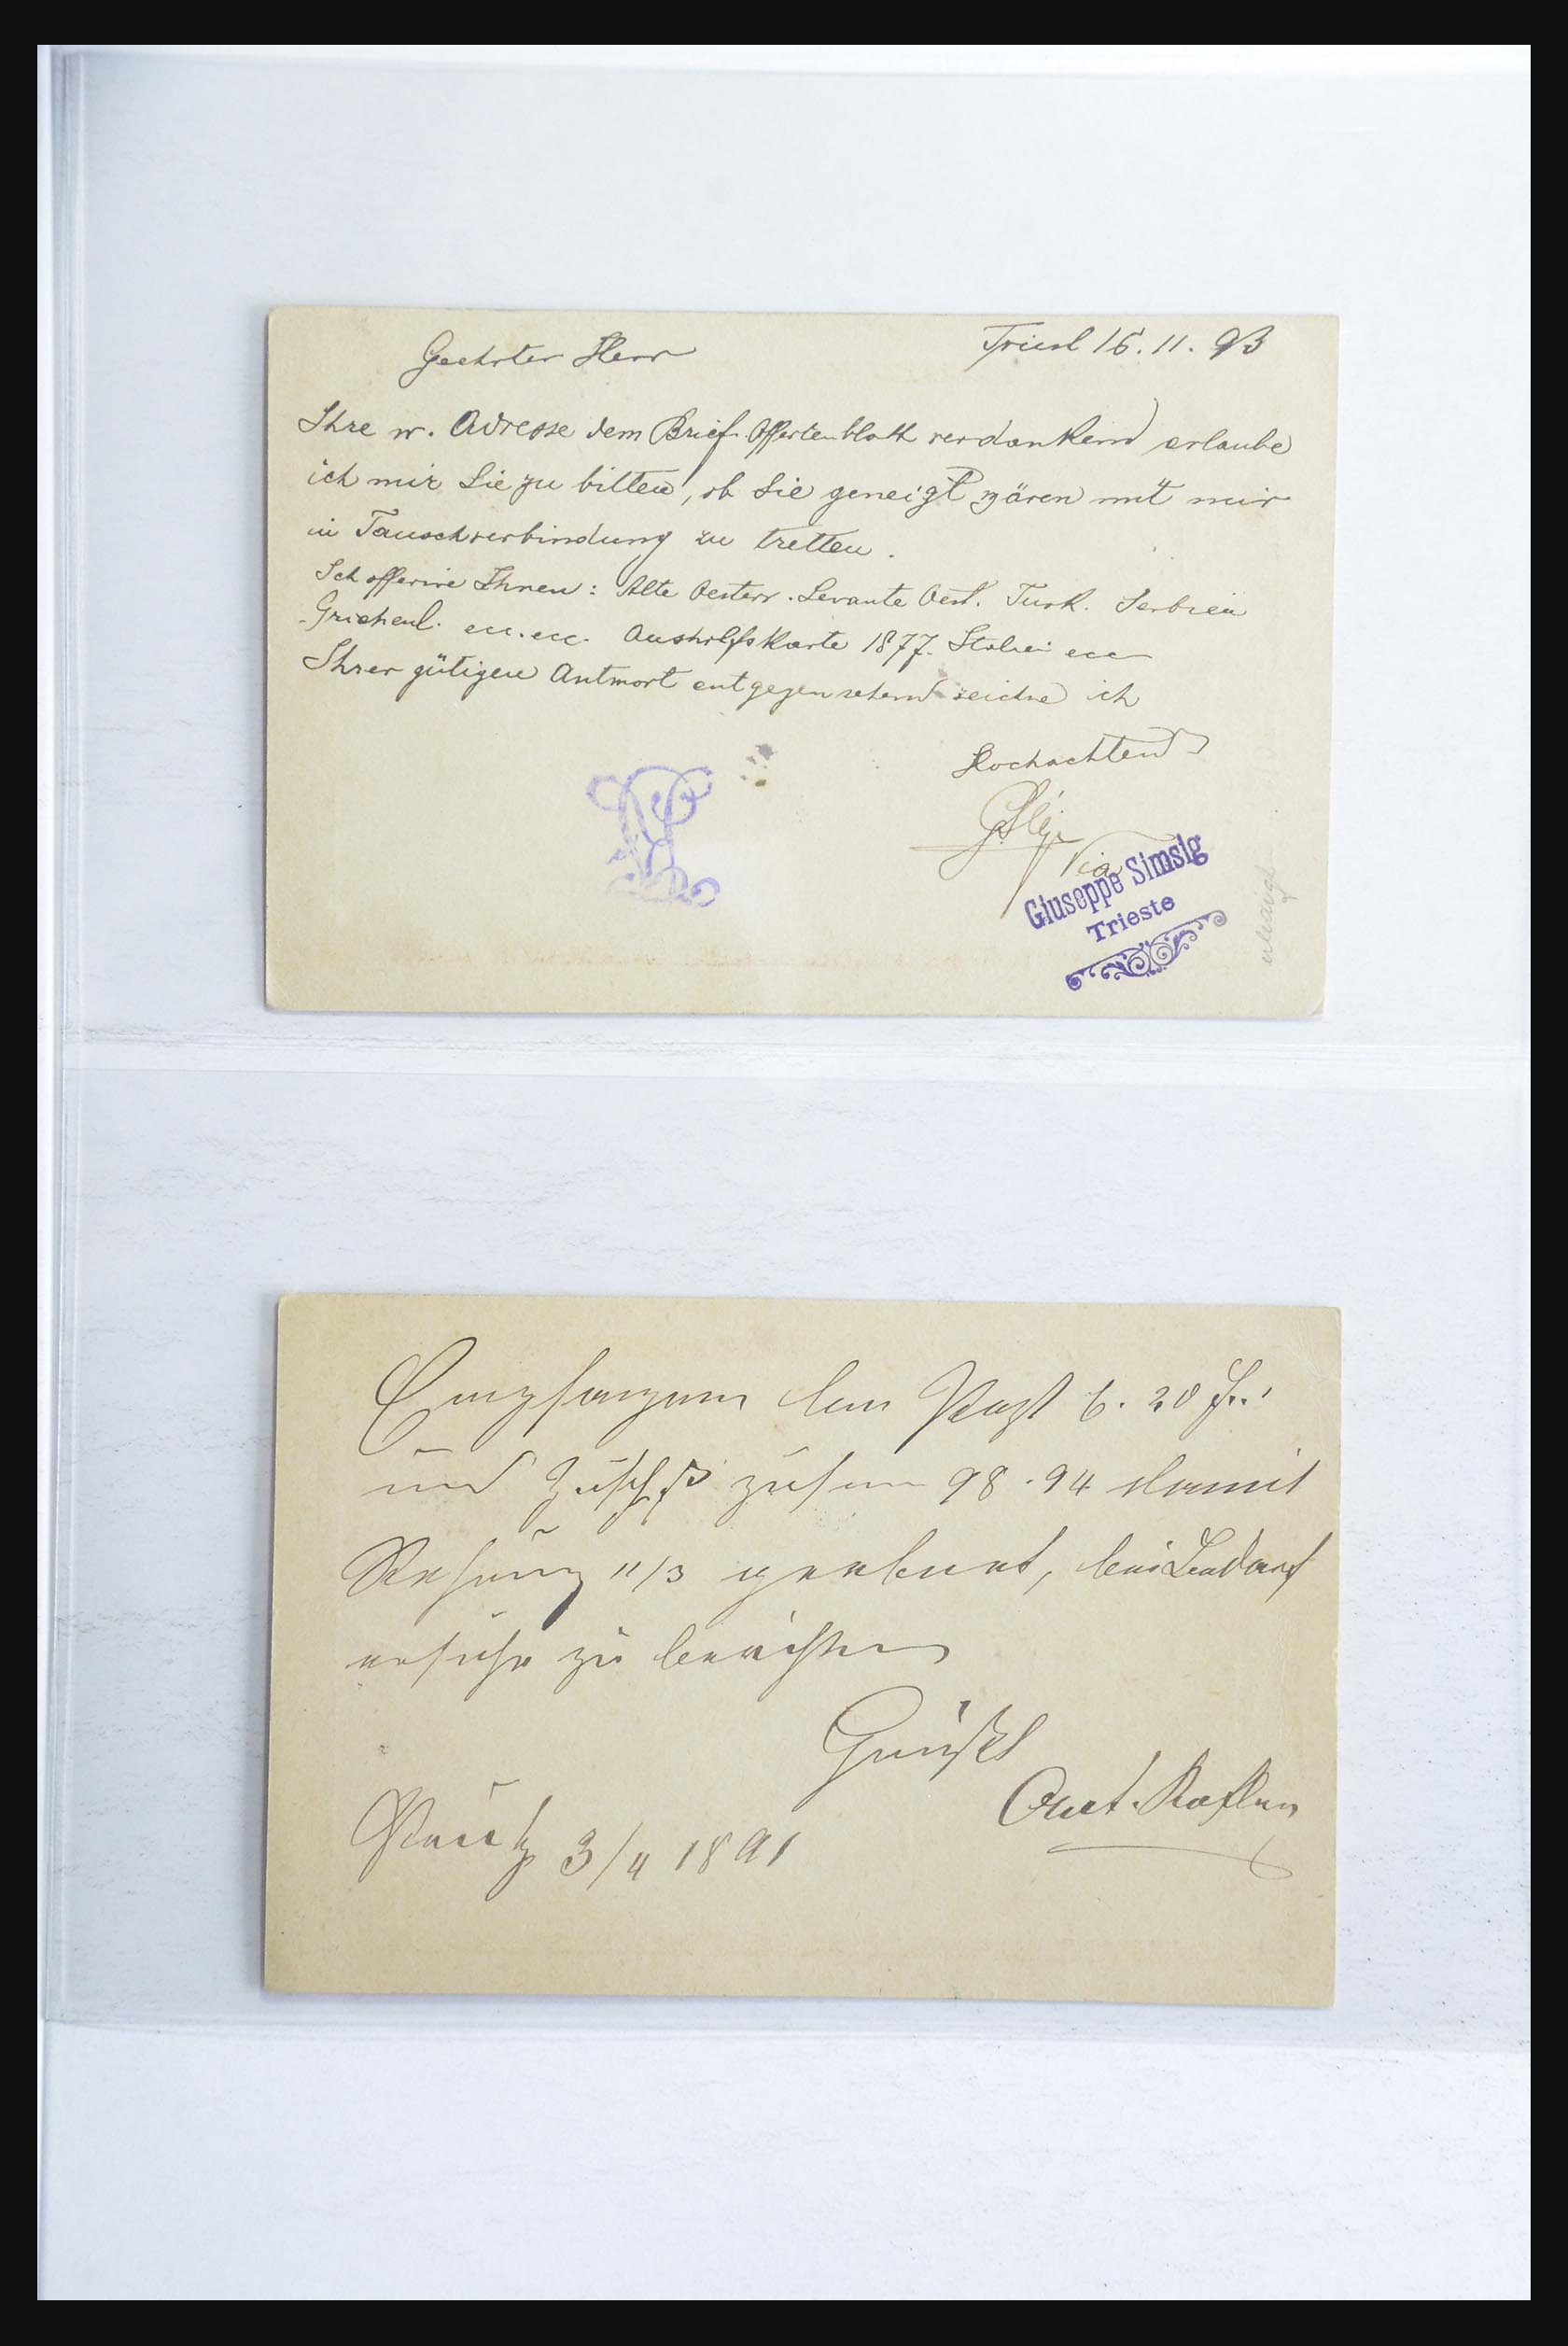 Geehrter Herr
Triest 16. 11. 93
Ihre w. Adresse dem Brief. Offertenblatt verdankend erlaube
ich mir Sie zu bitten, ob Sie geneigt wären mit mir
in Tauschverbindung zu tretten.
Ich offerire Ihnen: Alte Oesterr. Levante Oest. Turk. Serbien
Griechenl. ecc. ecc. Aushilfskarte 1877. Italien ecc
Ihrer gütigen Antwort entgegensehend zeichne ich
Hochachtend
Via
Giuseppe Simsig
Trieste
Empfangen 6. 20
und 98.94 damit
11/3 geebnet, bei Bedarf
ersuche zu berichten
Grüßt
3/4 1891